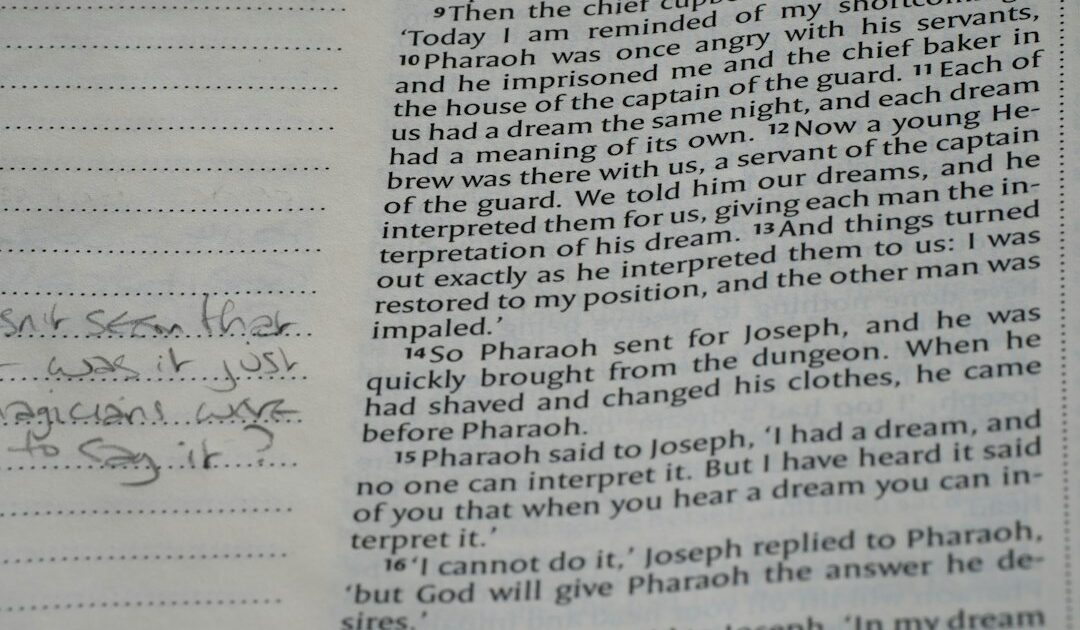 9Then the chief
'Today I am reminded of my
10Pharaoh was once angry with his servants,
and he imprisoned me and the chief baker in
the house of the captain of the guard. 11Each of
us had a dream the same night, and each dream
had a meaning of its own. 12Now a young He-
brew was there with us, a servant of the captain
of the guard. We told him our dreams, and he
interpreted them for us, giving each man the in-
terpretation of his dream. 13And things turned
out exactly as he interpreted them to us: I was
restored to my position, and the other man was
impaled.'
14So Pharaoh sent for Joseph, and he was
quickly brought from the dungeon. When he
had shaved and changed his clothes, he came
before Pharaoh.
15Pharaoh said to Joseph, 'I had a dream, and
no one can interpret it. But I have heard it said
of you that when you hear a dream you can in-
terpret it.'
16'I cannot do it,' Joseph replied to Pharaoh,
'but God will give Pharaoh the answer he de-
sires.'
'In my dream
seem that
was it just
were
to say it?